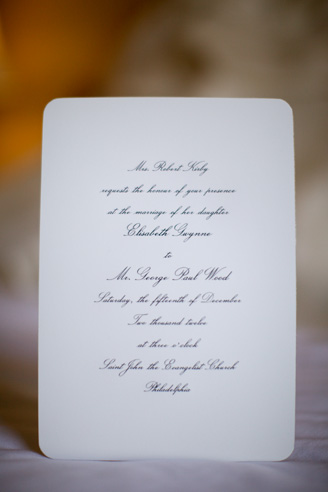 Mrs. Robert Kirby
requests the honour of your presence
at the marriage of her daughter
Elisabeth Gwynne
to
Mr. George Paul Wood
Saturday, the fifteenth of December
Two thousand twelve
at three o'clock
Saint John the Evangelist Church
Philadelphia